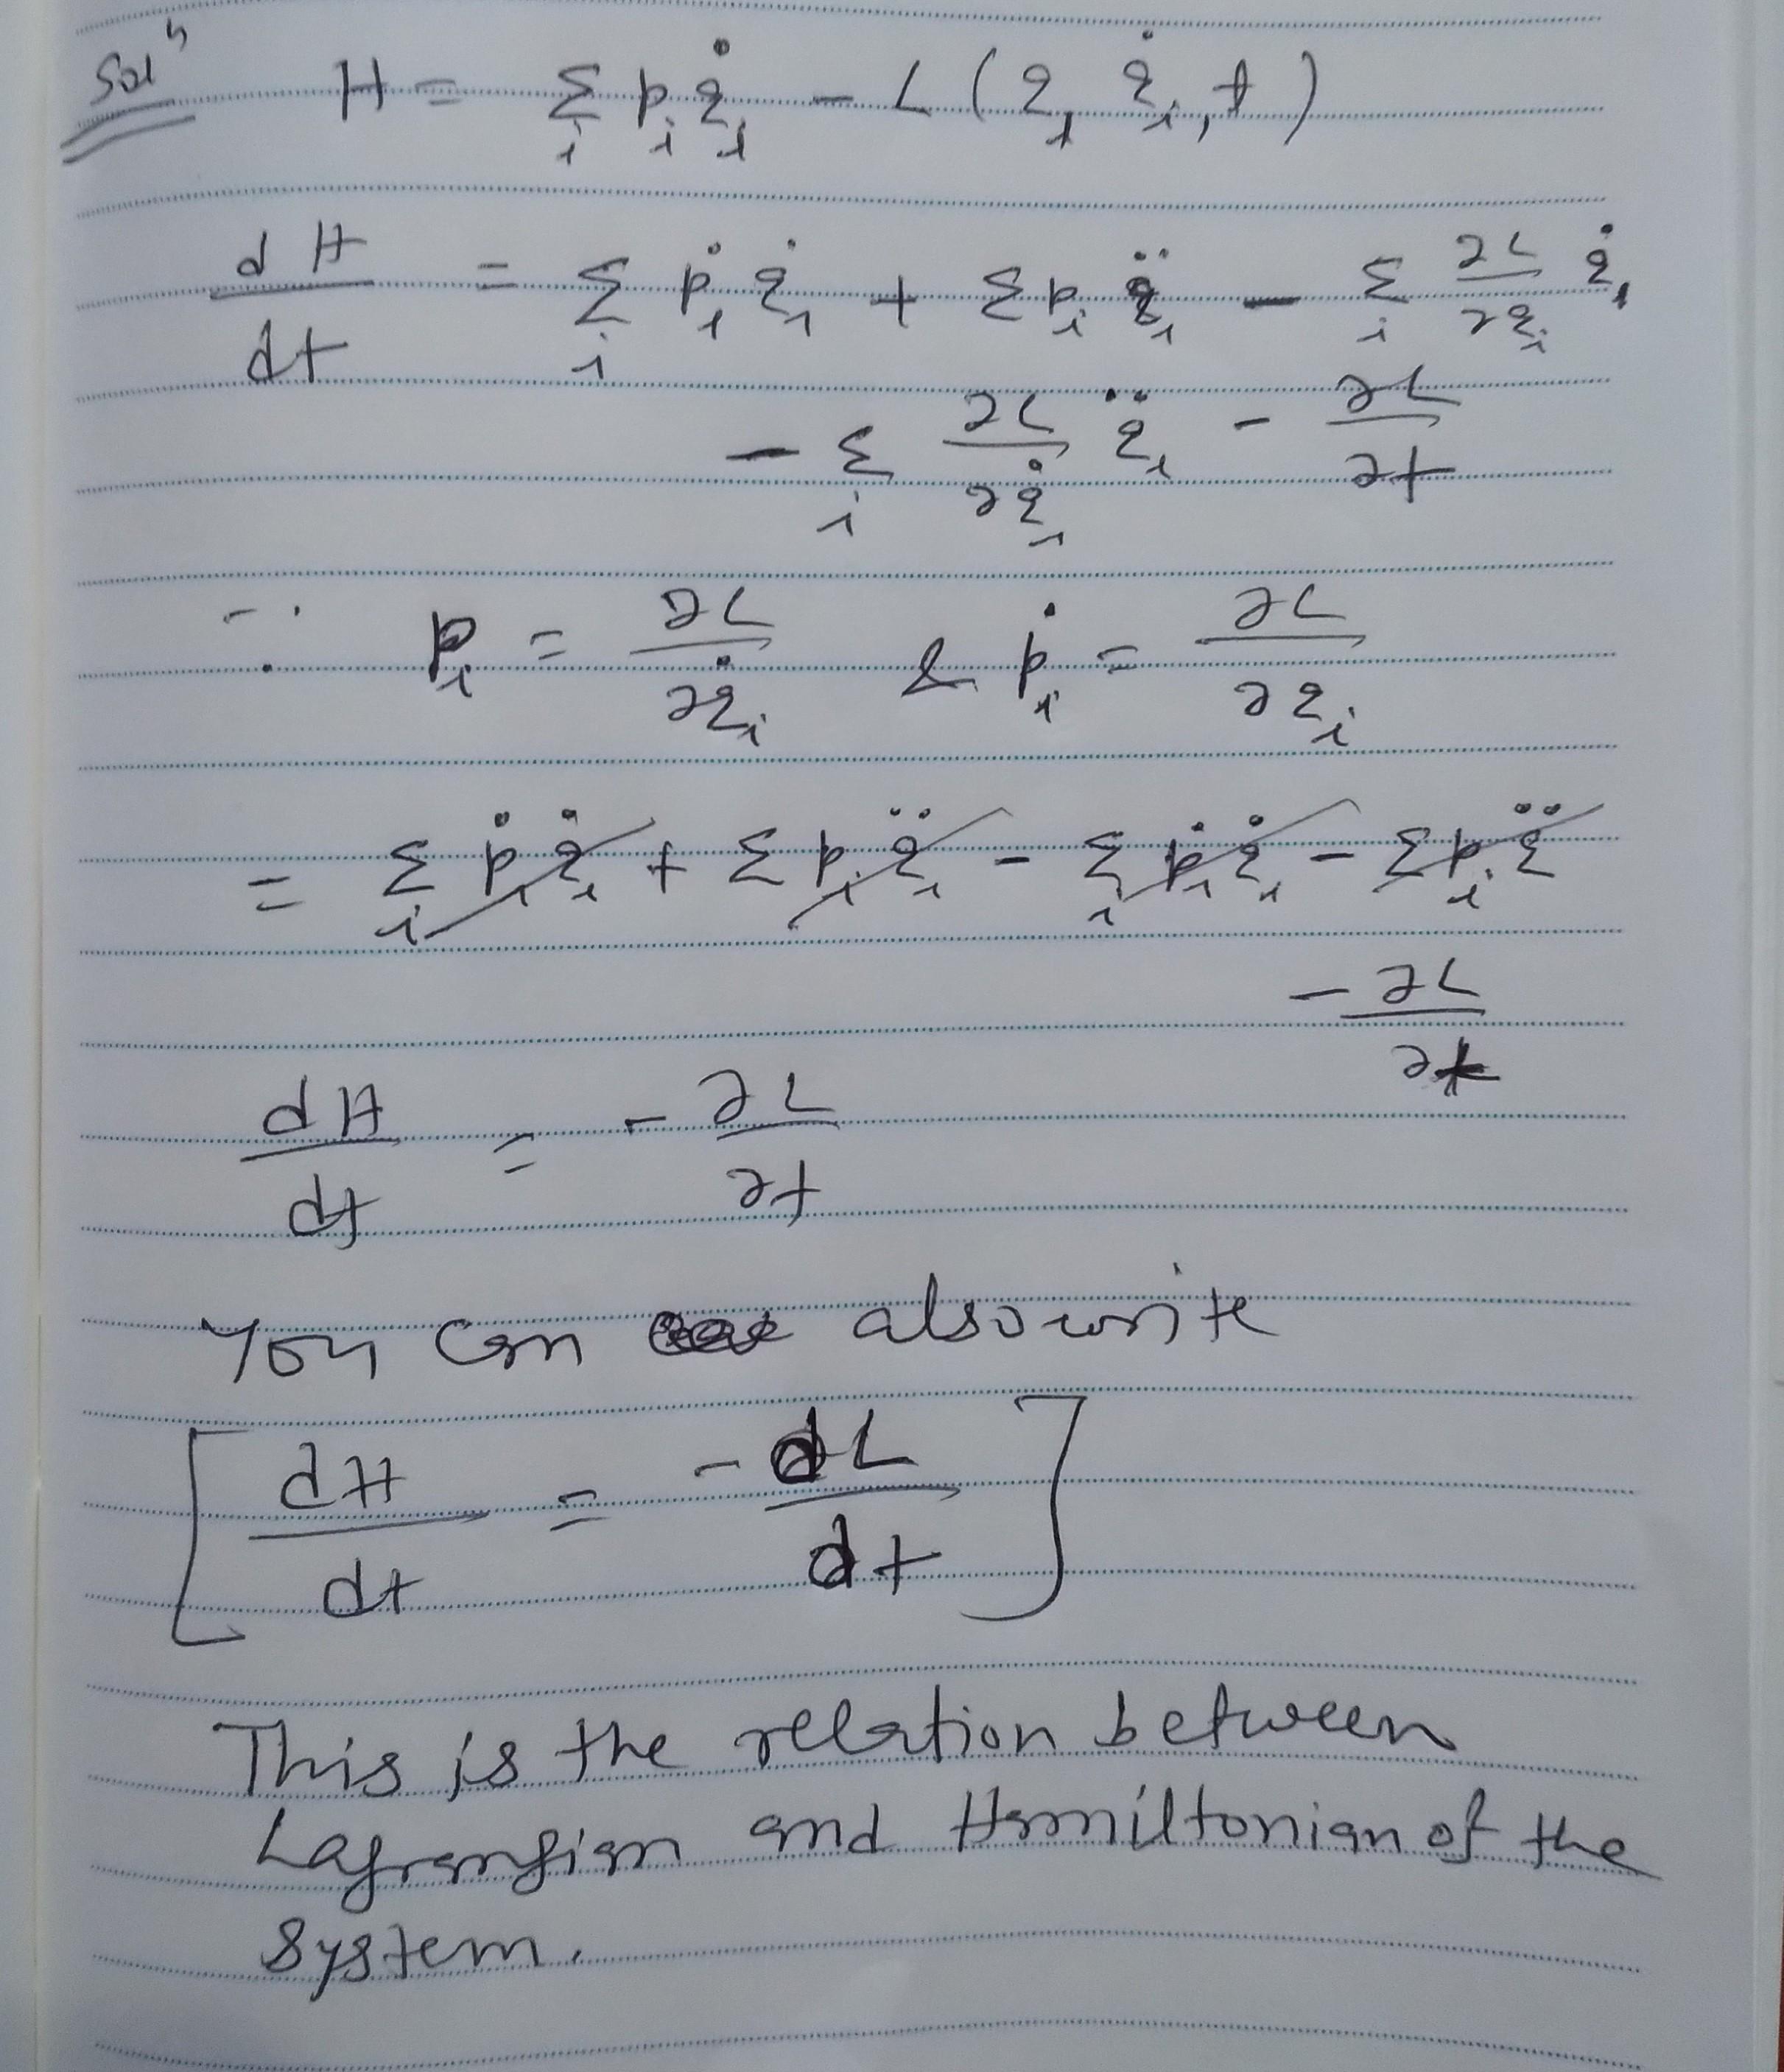 Solⁿ H = Σᵢ pᵢ q̇ᵢ − L (qᵢ q̇ᵢ, t)
dH/dt = Σᵢ ṗᵢ q̇ᵢ + Σ pᵢ q̈ᵢ − Σᵢ ∂L/∂qᵢ q̇ᵢ
− Σᵢ ∂L/∂q̇ᵢ q̈ᵢ − ∂L/∂t
∵ pᵢ = ∂L/∂q̇ᵢ & ṗᵢ = ∂L/∂qᵢ
= Σᵢ ṗᵢ q̇ᵢ + Σ pᵢ q̈ᵢ − Σᵢ ṗᵢ q̇ᵢ − Σ pᵢ q̈
− ∂L/∂t
dH/dt = − ∂L/∂t
You can also write
[ dH/dt = − dL/dt ]
This is the relation between
Lagrangian and Hamiltonian of the
system.